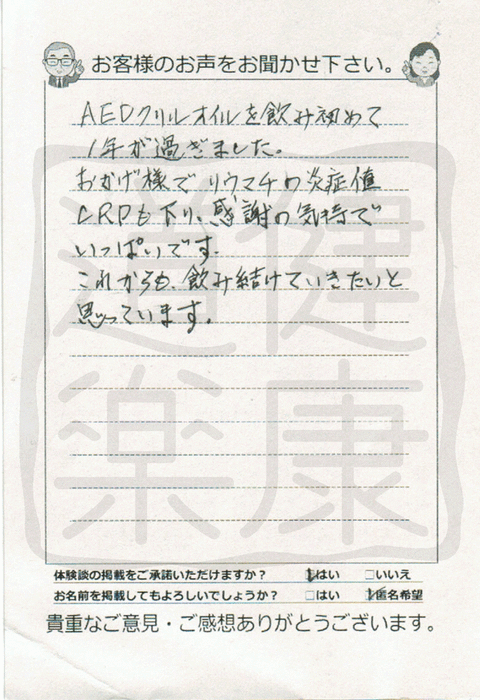 お客様のお声をお聞かせ下さい。
AEDクリルオイルを飲み初めて
1年が過ぎました。
おかげ様でリウマチの炎症値
CRPも下り、感謝の気持で
いっぱいです。
これからも、飲み続けていきたいと
思っています。
健康
道楽
体験談の掲載をご承諾いただけますか? はい □いいえ
お名前を掲載してもよろしいでしょうか? □はい 匿名希望
貴重なご意見・ご感想ありがとうございます。